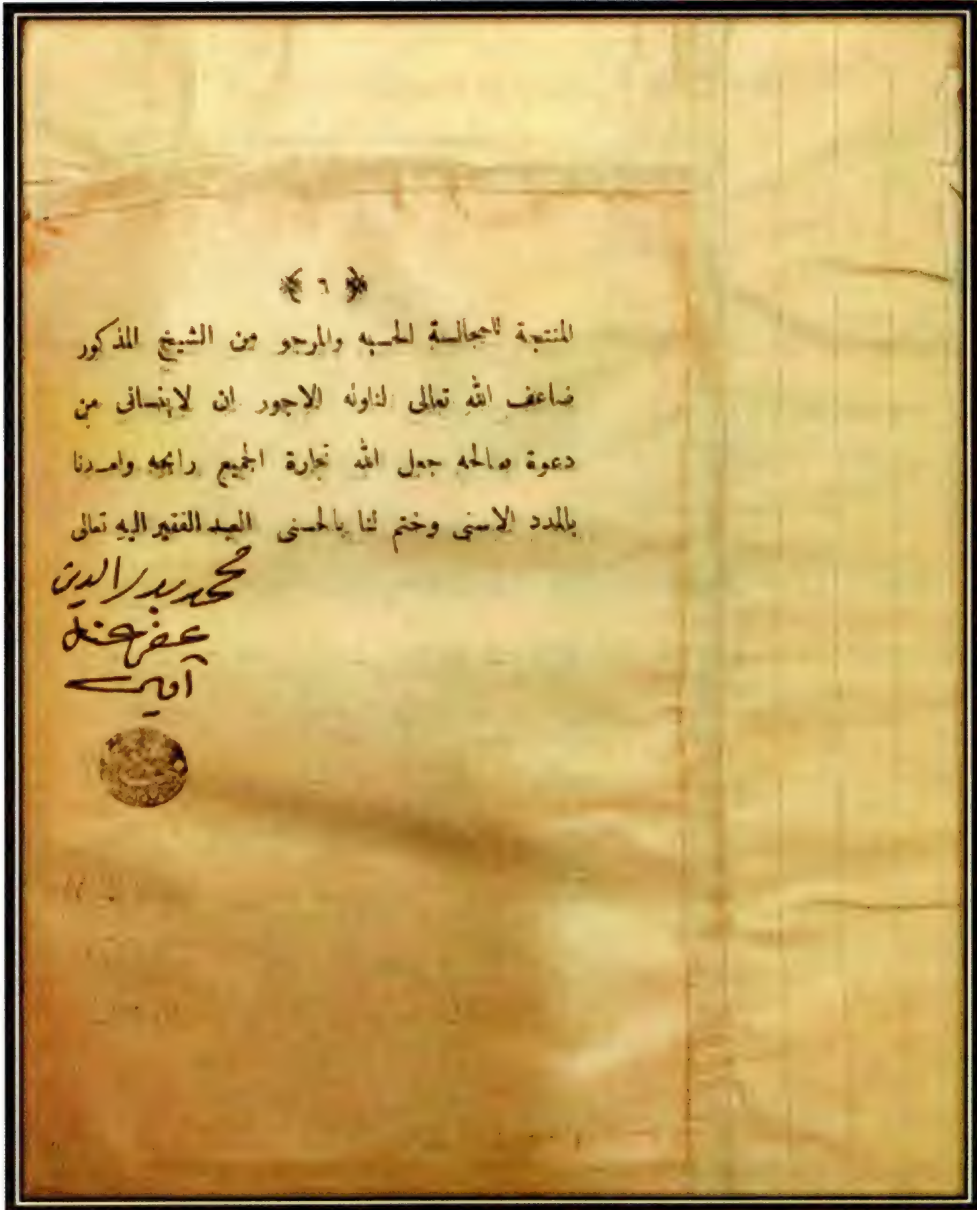 ﴿ ٦ ﴾
المنتجة للمجالسة الحسبه والمرجو من الشيخ المذكور
ضاعف الله تعالى لنا وله الاجور ان لاينسانى من
دعوة صالحه جعل الله تجارة الجميع رابحه وامدنا
بالمدد الاسنى وختم لنا بالحسنى العبد الفقير اليه تعالى
محمد بدر الدين
عفي عنه
آمين